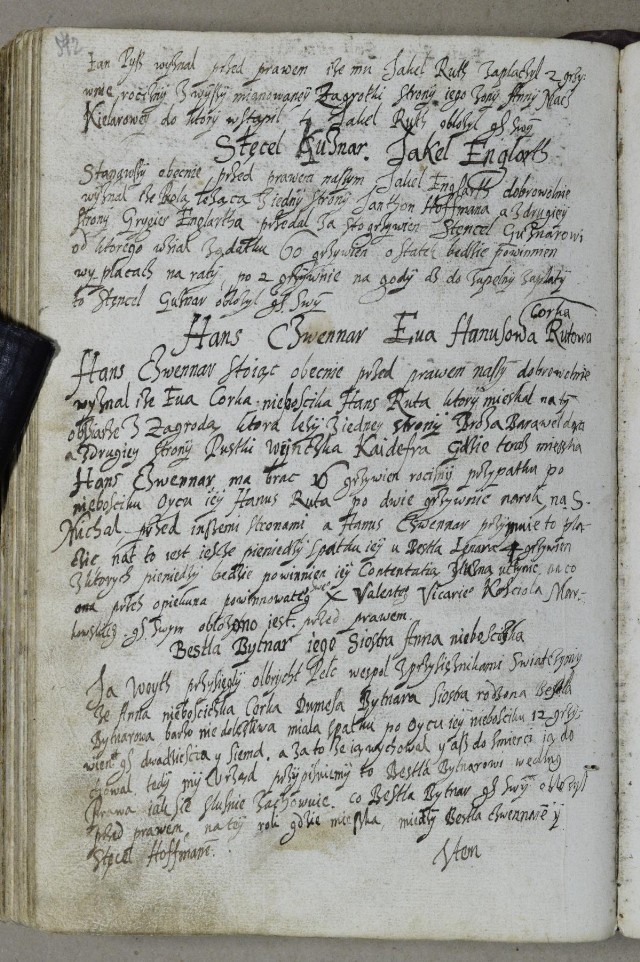 Jan Pyss wyznal przed prawem isz mu Jakel Ruth zaplaczyl 2 grzy-
wnie roczny z wyssy mianowaney Zagrotki strony iego zony Anny
do ktory wstąpil Jakel Ruth oblozyl gs swy
Stęcel Kusnar. Jakel Englarth
Stanąwssy obecnie przed prawem nassym Jakel Englarth dobrowolnie
wyznal isz Rola leżąca z iedny strony Janthon Hoffmana a z drugiey
strony Gregier Englartha przedal za sto grzywien Stencel Gusnarowi
od ktorego wzial zadatku 60 grzywien ostatek bedzie powinnien
wyplacach na raty, po 2 grzywnie na gody asz do zupelny zaplaty
to Stencel Gusnar oblozyl gs swy
Corka
Hans Czwennar Eua Hanusowa Rutowa
Hans Czwennar Stoiąc obecnie przed prawem nassy dobrowolnie
wyznal isz Eua Corka nieboscika Hans Ruta ktory mieskal na ty
obssarze z Zagrodą, ktora lezy z iedney strony
a z drugiey strony Pustki Kaidesra gdzie tenze mieszka
Hans Czwennar ma brac 16 grzywien roczny przypatku po
nieboscziku Oycu iey Hanus Ruta po dwie grzywnie na rok, na S.
Michal przed inssemi stronami a Hanus Czwennar przyimuie to pla-
cic nat to iest iescze pieniedzy spatku iey u Bestla 4 grzywien
z ktorych pieniedzy bedzie powinnien iey Contentatia slusna uczynic, na co
ona przes opiekuna powinnowatego Valentego Vicarie Kosciola Mar-
kowskieg gs swym oblozono iest przed prawem
Bestla Bytnar iego Siostra Anna nieboscika
Ja Woyth przysiegly Olbrycht Pelc wespol z przysieznikami swiadczymy
Ze Anna nieboscicka Corka Bytnara Siostra rodzona Bestla
Bytnarowa barzo niedolezliwa miala spatku po Oycu iey nieboscziku 12 grzy-
wien gs dwadziescia y siedm. a za to ze ią wychowal y asz do smierci ią do
chowal tedy my Urzad przypisuiemy to Bestla Bytnarowi wedlug
Prawa iak sie slusnie zachowuie. co Bestla Bytnar gs swy oblozyl
przed prawem na tey roli gdzie mieszka, miedzy Bestla Czwennare y
Stęcel Hoffmane.
Item